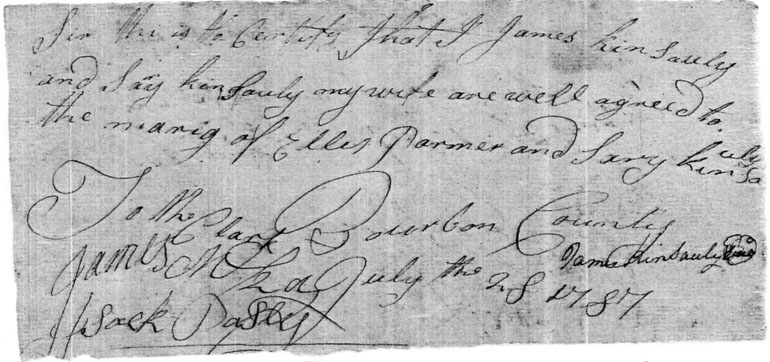 Sir this is to Certify that I James kinsauly
and Say kinsauly my wife are well agreed to
the marig of Elles Parmer and Sary kinsauly
To the Clark Bourbon County
James July the 28 1787
James Kinsauly
Isack